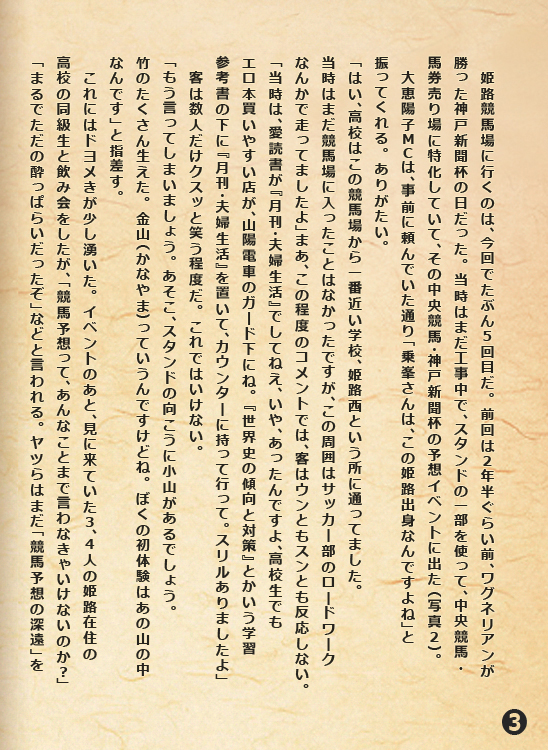 姫路競馬場に行くのは、今回でたぶん５回目だ。前回は２年半ぐらい前、ワグネリアンが
勝った神戸新聞杯の日だった。当時はまだ工事中で、スタンドの一部を使って、中央競馬・
馬券売り場に特化していて、その中央競馬・神戸新聞杯の予想イベントに出た(写真２)。
大恵陽子ＭＣは、事前に頼んでいた通り「乗峯さんは、この姫路出身なんですよね」と
振ってくれる。ありがたい。
「はい、高校はこの競馬場から一番近い学校、姫路西という所に通ってました。
当時はまだ競馬場に入ったことはなかったですが、この周囲はサッカー部のロードワーク
なんかで走ってましたよ」まあ、この程度のコメントでは、客はウンともスンとも反応しない。
「当時は、愛読書が『月刊・夫婦生活』でしてねえ、いや、あったんですよ、高校生でも
エロ本買いやすい店が、山陽電車のガード下にね。『世界史の傾向と対策』とかいう学習
参考書の下に『月刊・夫婦生活』を置いて、カウンターに持って行って。スリルありましたよ」
客は数人だけクスッと笑う程度だ。これではいけない。
「もう言ってしまいましょう。あそこ、スタンドの向こうに小山があるでしょう。
竹のたくさん生えた。金山(かなやま)っていうんですけどね。ぼくの初体験はあの山の中
なんです」と指差す。
これにはドヨメきが少し湧いた。イベントのあと、見に来ていた３、４人の姫路在住の
高校の同級生と飲み会をしたが、「競馬予想って、あんなことまで言わなきゃいけないのか?」
「まるでただの酔っぱらいだったぞ」などと言われる。ヤツらはまだ「競馬予想の深遠」を
3